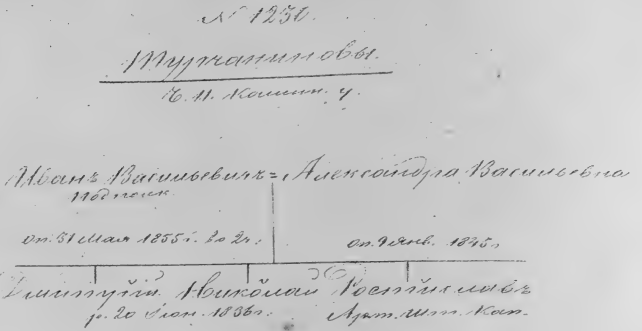 № 1230.
Турчаниновы.
Ч. II. Колыш. у.
Иванъ Васильевичъ = Александра Васильевна
Подполк.
оп. 31 Мая 1855 г. 2г. оп. 9 Янв. 1845 г.
Дмитрій Николай Ростиславъ
р. 20 1836 г. Арт. Шт. Кап.